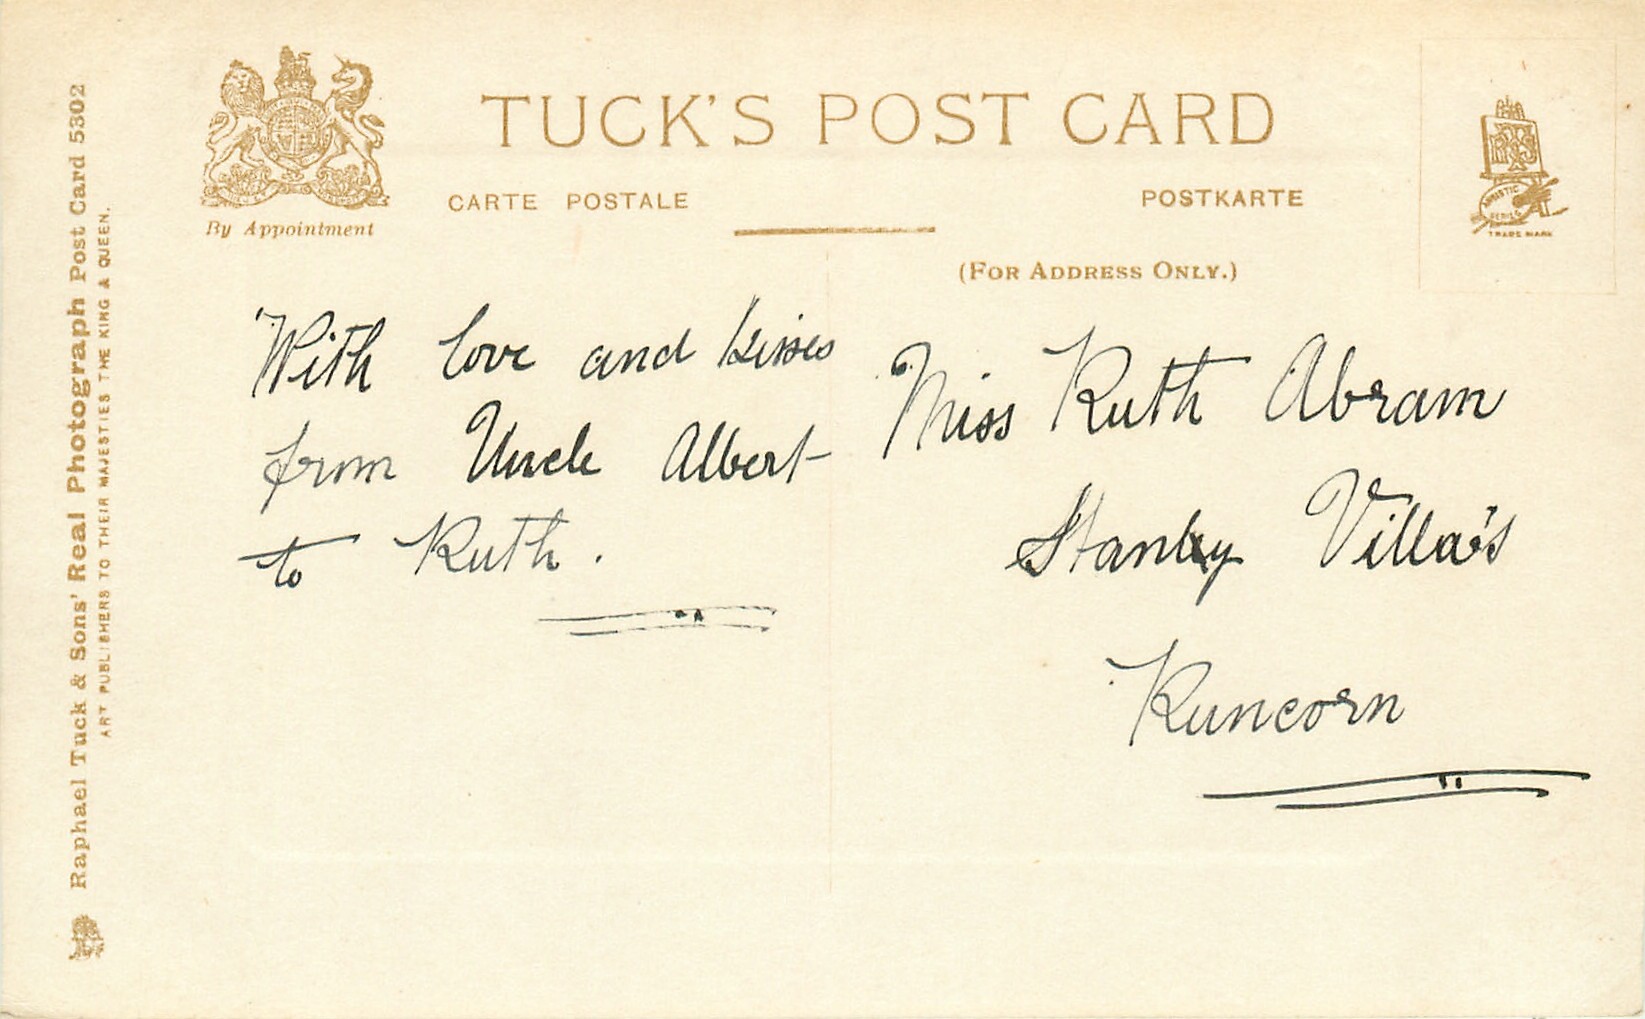 TUCK'S POST CARD
CARTE POSTALE
POSTKARTE
By Appointment
(FOR ADDRESS ONLY.)
RTS
ARTISTIC
SERIES
TRADE MARK
With love and kisses
from Uncle Albert
to Ruth.
Miss Ruth Abram
Stanley Villa's
Runcorn
Raphael Tuck & Sons' Real Photograph Post Card 5302
ART PUBLISHERS TO THEIR MAJESTIES THE KING & QUEEN.